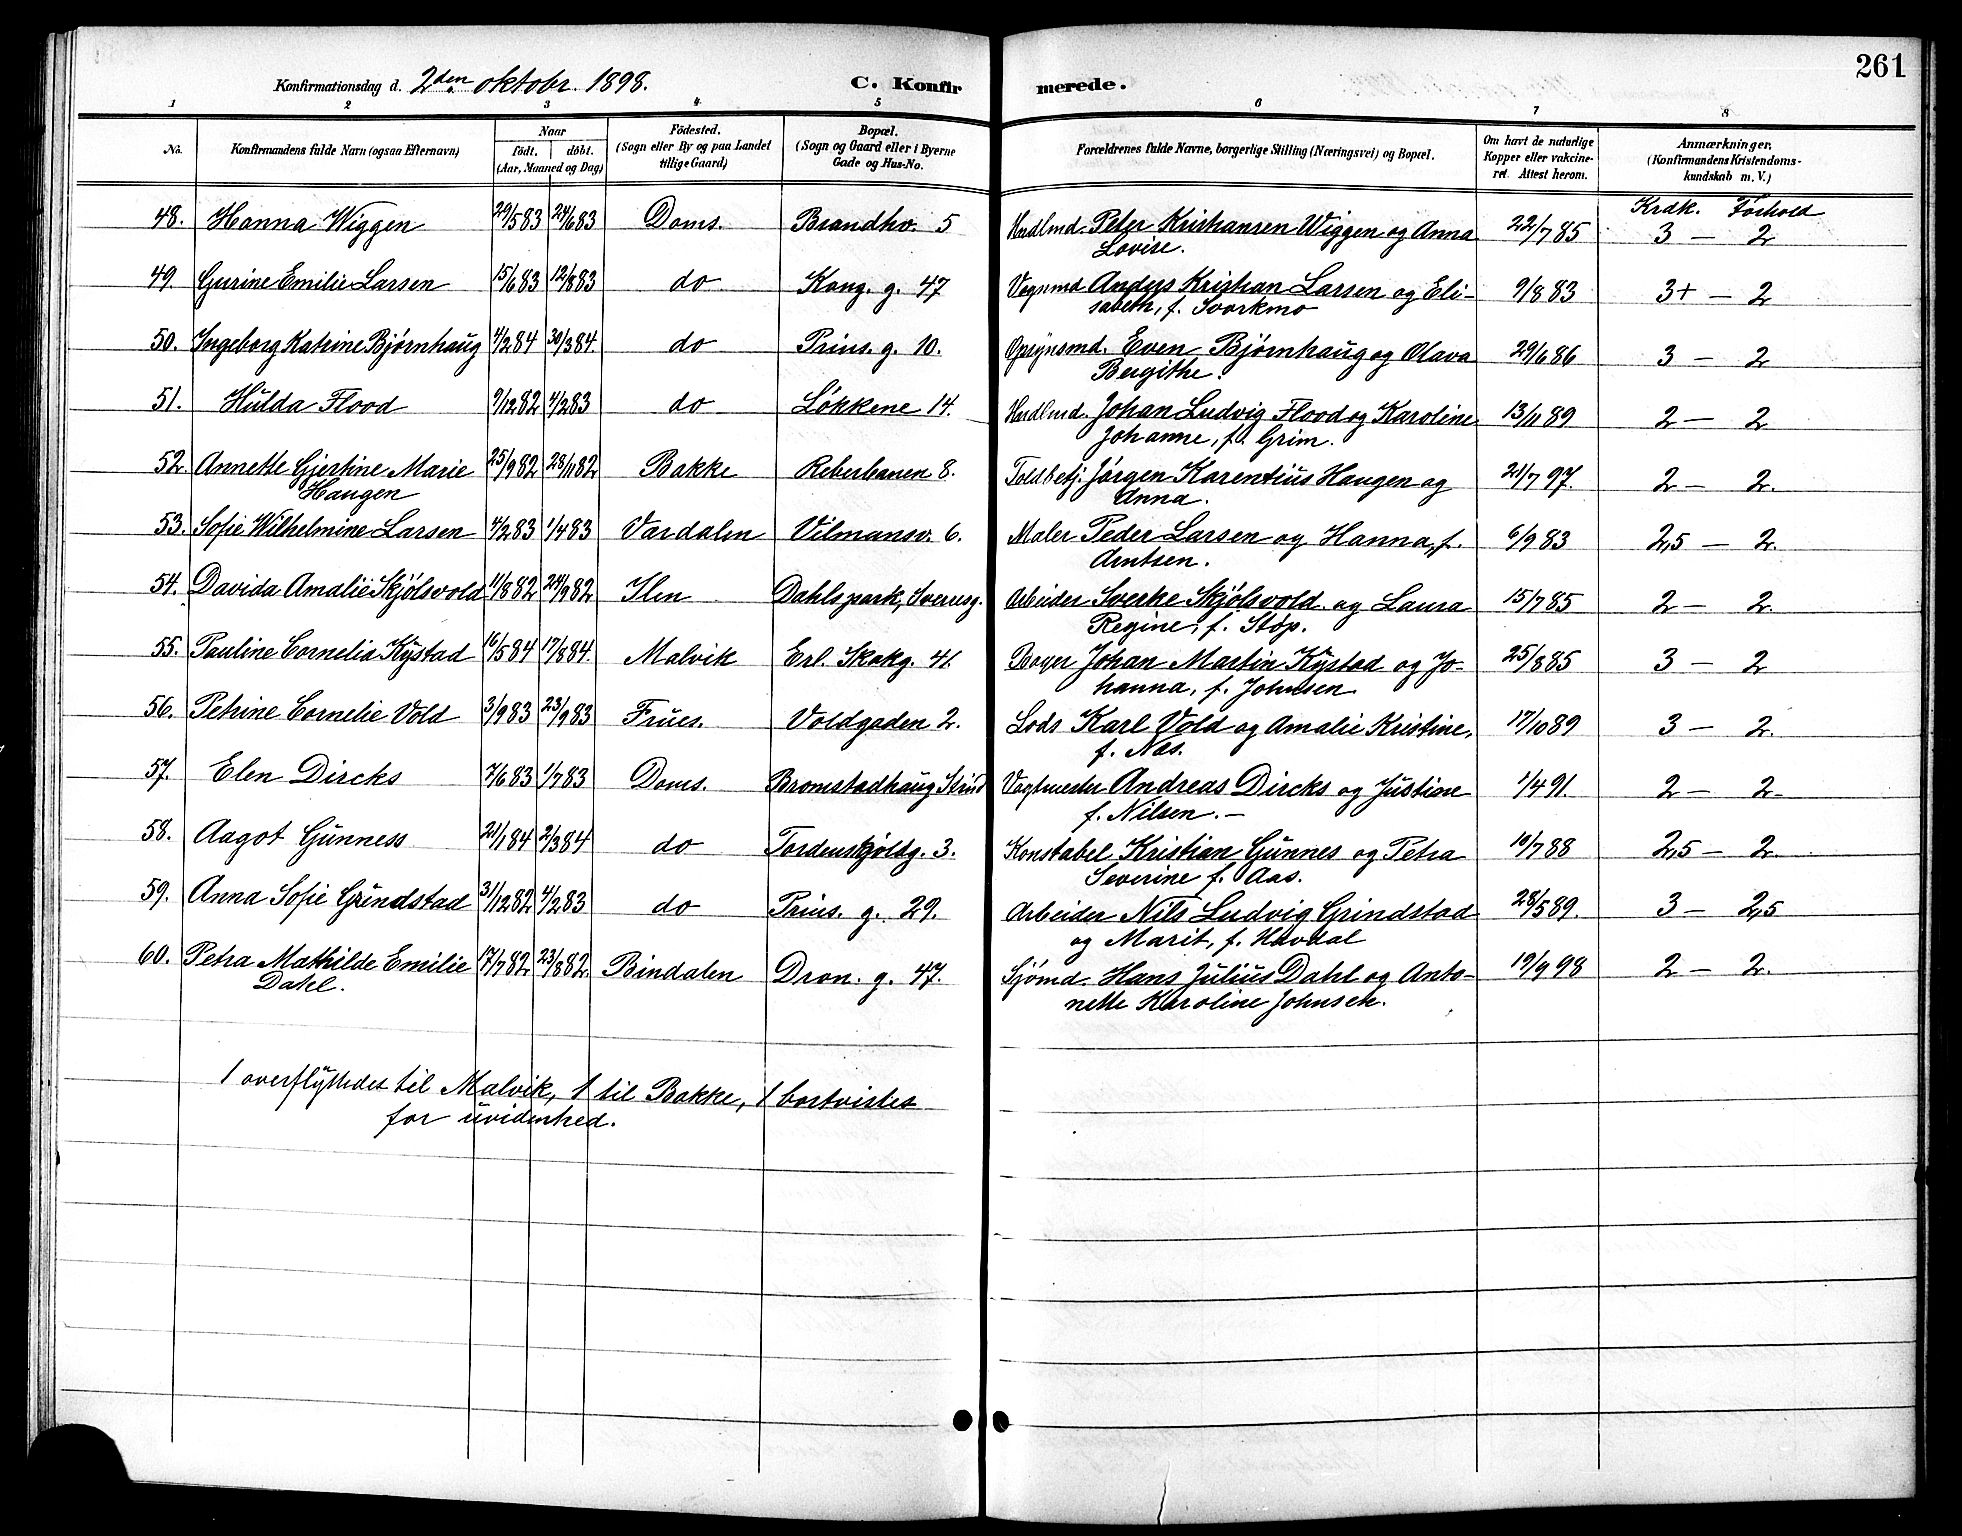 261
Konfirmationsdag d. 2den oktobr. 1898. C. Konfirmerede.
1 2 3 4 5 6 7 8
No. Konfirmandens fulde Navn (ogsaa Efternavn) Naar födt. döbt. (Aar, Maaned og Dag) Födested. (Sogn eller By og paa Landet tillige Gaard) Bopæl. (Sogn og Gaard eller i Byerne Gade og Hus-No. Forældrenes fulde Navne, borgerlige Stilling (Næringsvei) og Bopæl. Om havt de naturlige Kopper eller vakcineret. Attest herom. Anmærkninger. (Konfirmandens Kristendomskundskab m. V.)
Krdk. Forhold
48. Hanna Wiggen 29/5 83 24/6 83 Doms. Brandhv. 5 Hndlmd. Peter Kristiansen Wiggen og Anna 22/7 85 3 — 2
Lovise.
49. Gurine Emilie Larsen 15/6 83 12/8 83 do Kong. g. 47 Vognmd Anders Kristian Larsen og Eli- 9/8 83 3+ — 2
sabeth, f. Svorkmo
50. Ingeborg Katrine Bjørnhaug 4/2 84 30/3 84. do Prins. g. 10. Opsynsmd. Even Bjørnhaug og Olava 29/6 86 3 — 2
Bergithe.
51. Hulda Flood 9/12 82 4/2 83 do Løkkene 14. Hndlmd. Johan Ludvig Flood og Karoline 13/11 89 2 — 2
Johanne, f. Grim.
52. Annette Gjertine Marie 25/9 82 28/11 82 Bakke Reberbanen 8. Toldbetj. Jørgen Karentius Haugen og 21/7 97. 2 — 2.
Haugen Anna.
53. Sofie Wilhelmine Larsen 4/2 83 1/4 83 Værdalen Vilmansv. 6. Maler Peder Larsen og Hanna, f. 6/9 83 2,5 — 2.
Arntsen.
54. Davida Amalie Skjølsvold 11/8 82 24/9 82 Ilen Dahlspark, Sverresg. Arbeider Sverke Skjølsvold og Laura 15/7 85 2 — 2.
Regine, f. Støp.
55. Pauline Cornelia Kystad 16/5 84 17/8 84. Malvik Erl. Skakg. 41. Bager Johan Martin Kystad og Jo- 25/8 85 3 — 2
hanna, f. Johnsen
56. Petrine Cornelie Vold 3/9 83 23/9 83 Frues. Voldgaden 2. Lods Karl Vold og Amalie Kristine, 17/10 89 3 — 2.
f. Næs.
57. Elen Dircks 7/6 83 1/7 83 Doms. Bromstadhaug Strind Vagtmester Andreas Dircks og Justine 1/4 91. 2 — 2
f. Nilsen. —
58. Aagot Gunness 21/1 84 2/3 84 do Tordenskjøldg. 3. Konstabel Kristian Gunnes og Petra 10/7 88 2,5 — 2
Severine f. Aas.
59. Anna Sofie Grindstad 31/12 82 4/2 83 do Prins. g. 29. Arbeider Nils Ludvig Grindstad 28/5 89. 3 — 2,5
og Marit, f. Havdal
60. Petra Mathilde Emilie 17/7 82 23/8 82. Bindalen Dron. g. 47. Sjømd. Hans Julius Dahl og Anto- 19/9 98 2 — 2.
Dahl. nette Karoline Johnsen.
1 overflyttedes til Malvik, 1 til Bakke, 1 bortvistes
for uvidenhed.